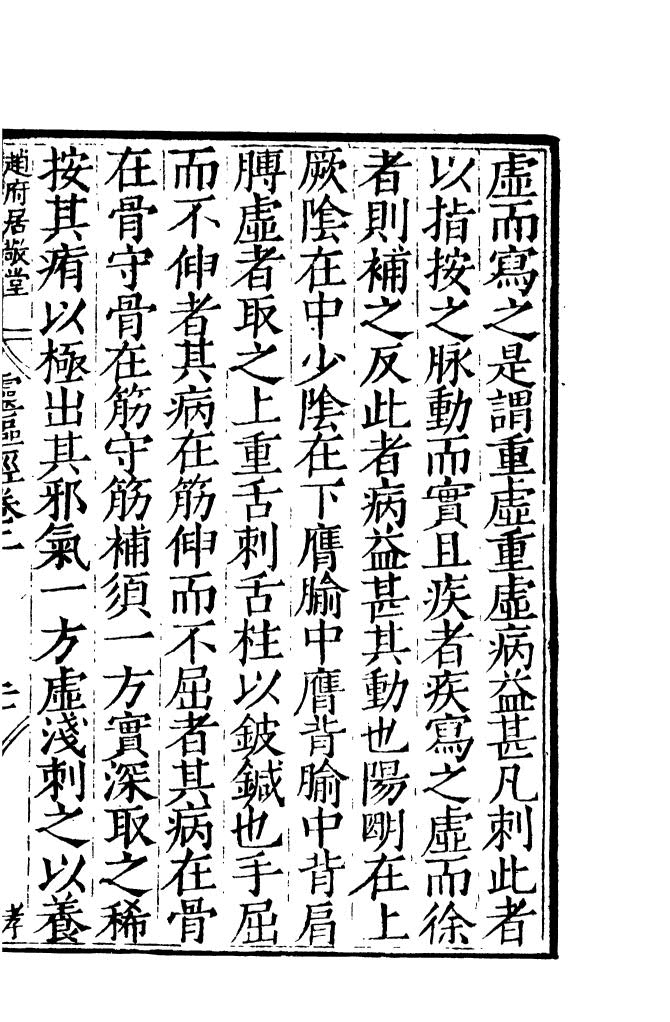 虛而寫之是謂重虛重虛病益甚凡刺此者
以指按之脉動而實且疾者疾寫之虛而徐
者則補之反此者病益甚其動也陽明在上
厥陰在中少陰在下膺腧中膺背腧中背肩
膊虛者取之上重舌刺舌柱以鈹鍼也手屈
而不伸者其病在筋伸而不屈者其病在骨
在骨守骨在筋守筋補須一方實深取之稀
按其痏以極出其邪氣一方虛淺刺之以養
趙府居敬堂
靈樞經卷